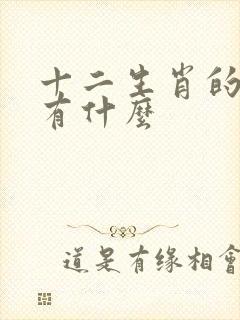 十二生肖的
有什麼
道是有缘相會